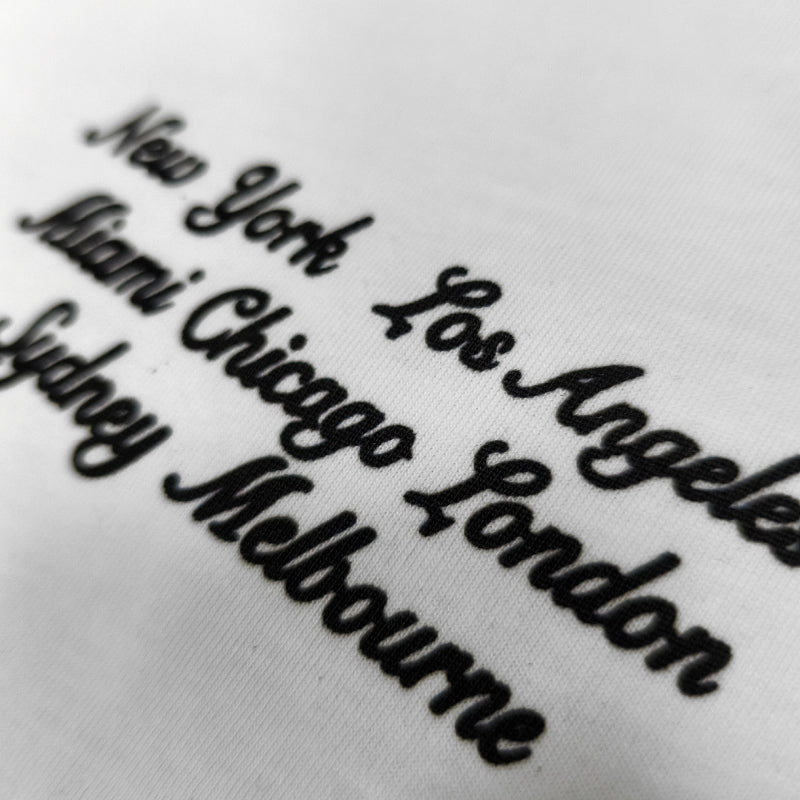 New York Los Angeles
Miami Chicago London
Sydney Melbourne